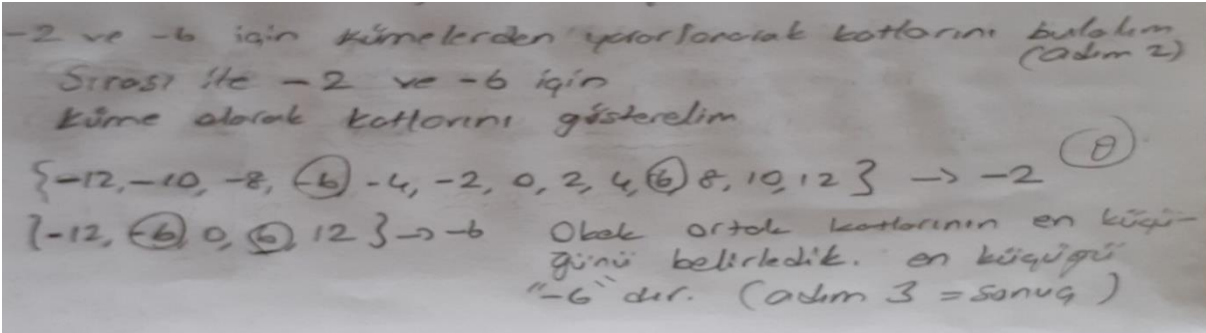 -2 ve -6 için kümelerden yararlanarak katlarını bulalım
(adım 2)
Sırası ile -2 ve -6 için
küme olarak katlarını gösterelim
{-12, -10, -8, -6, -4, -2, 0, 2, 4, 6, 8, 10, 12} → -2
{-12, -6, 0, 6, 12} → -6 Obek ortak katlarının en küçü-
ğünü belirledik. en küçüğü
"-6" dır. (adım 3 = sonuç)